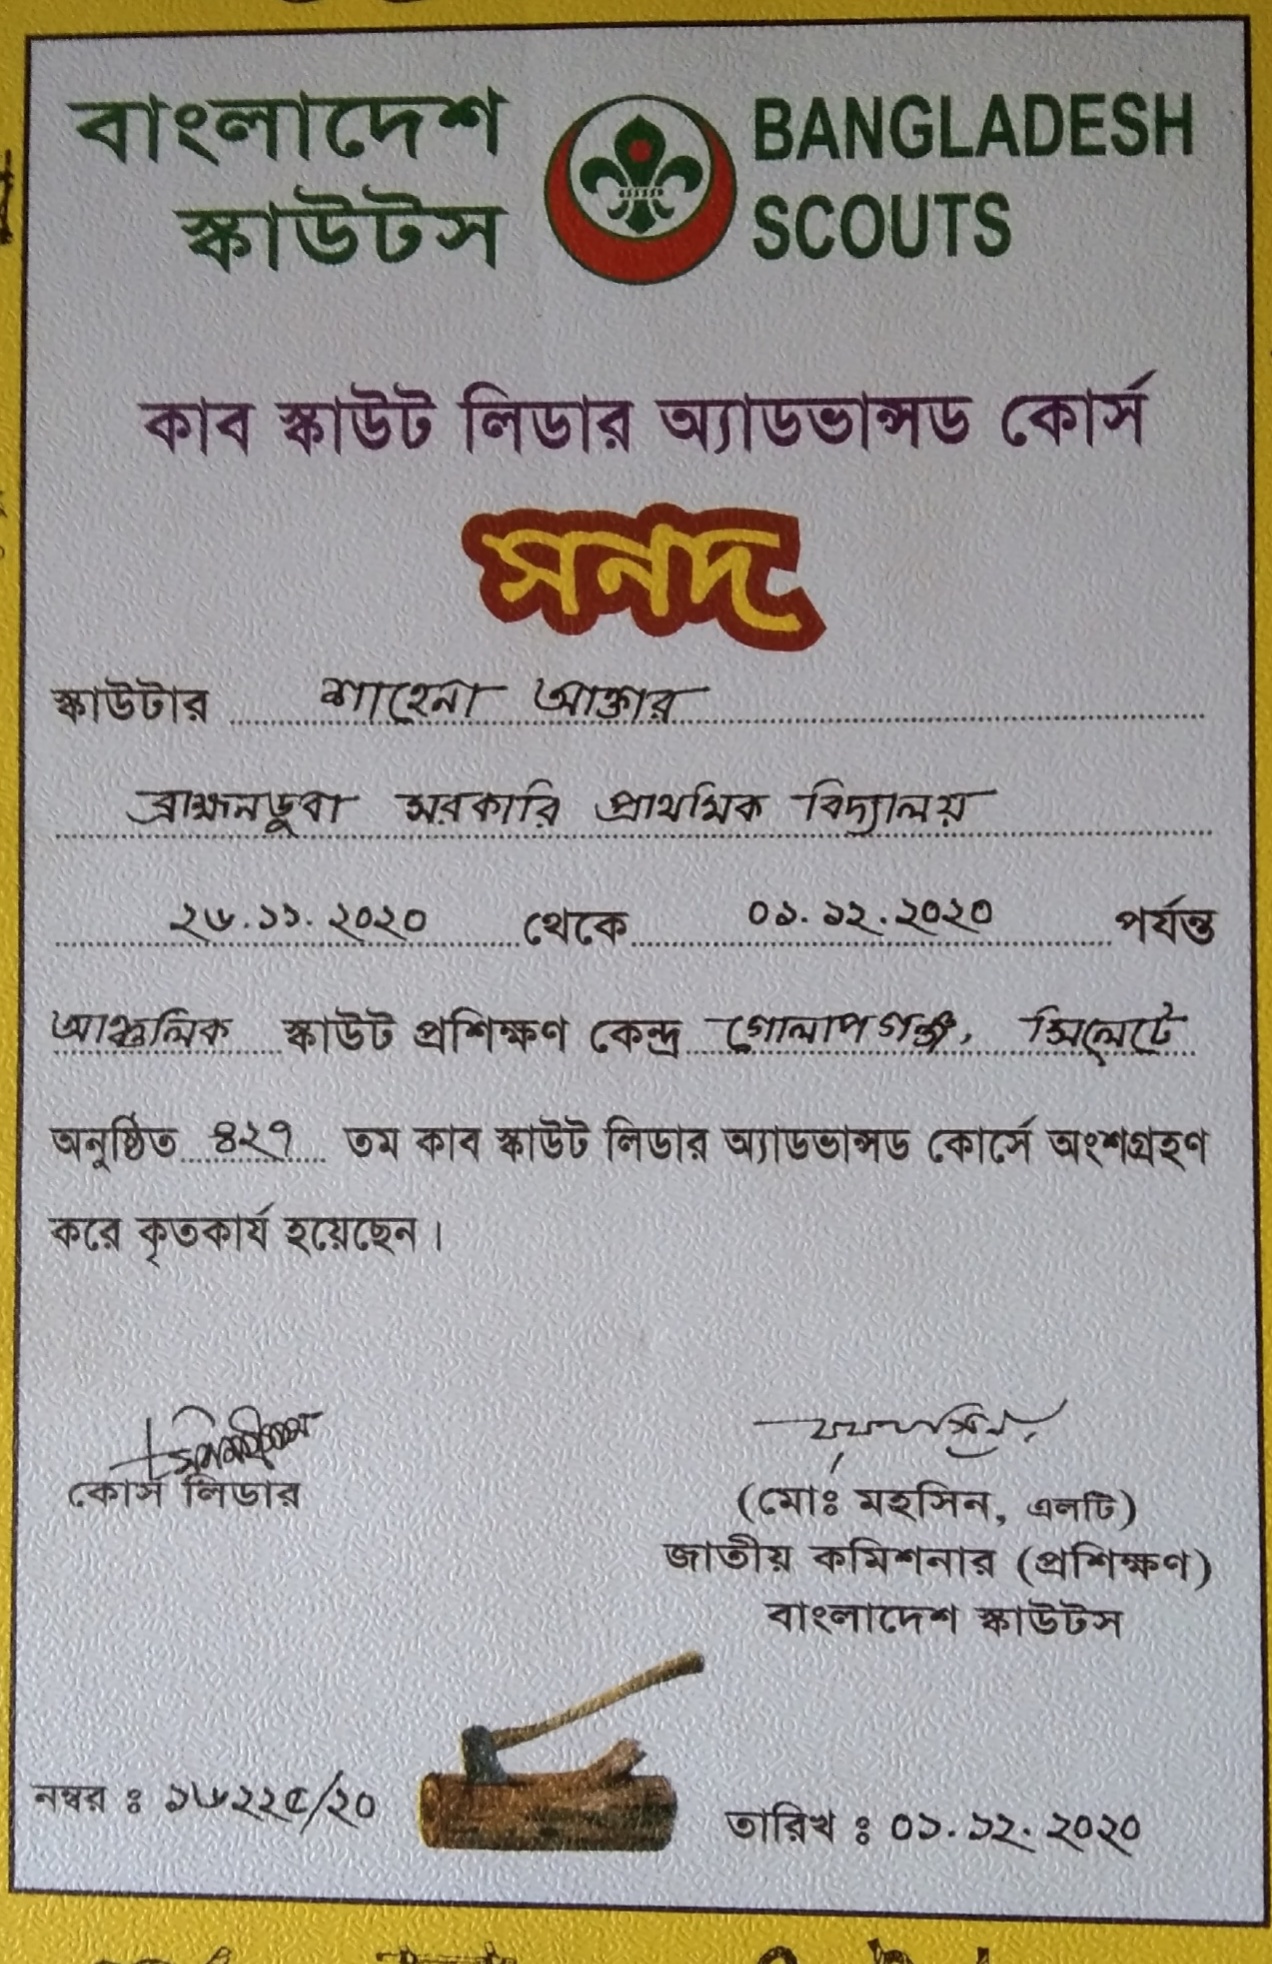 বাংলাদেশ
স্কাউটস
BANGLADESH
SCOUTS
কাব স্কাউট লিডার অ্যাডভান্সড কোর্স
সনদ
স্কাউটার শাহেনা আক্তার
ব্রাহ্মনডুবা সরকারি প্রাথমিক বিদ্যালয়
২৬.১১.২০২০ থেকে ০১.১২.২০২০ পর্যন্ত
আঞ্চলিক স্কাউট প্রশিক্ষণ কেন্দ্র গোলাপগঞ্জ, সিলেটে
অনুষ্ঠিত ৪২৭ তম কাব স্কাউট লিডার অ্যাডভান্সড কোর্সে অংশগ্রহণ
করে কৃতকার্য হয়েছেন।
কোর্স লিডার
(মোঃ মহসিন, এলটি)
জাতীয় কমিশনার (প্রশিক্ষণ)
বাংলাদেশ স্কাউটস
নম্বর ঃ ১৬২২৫/২০
তারিখ ঃ ০১.১২.২০২০